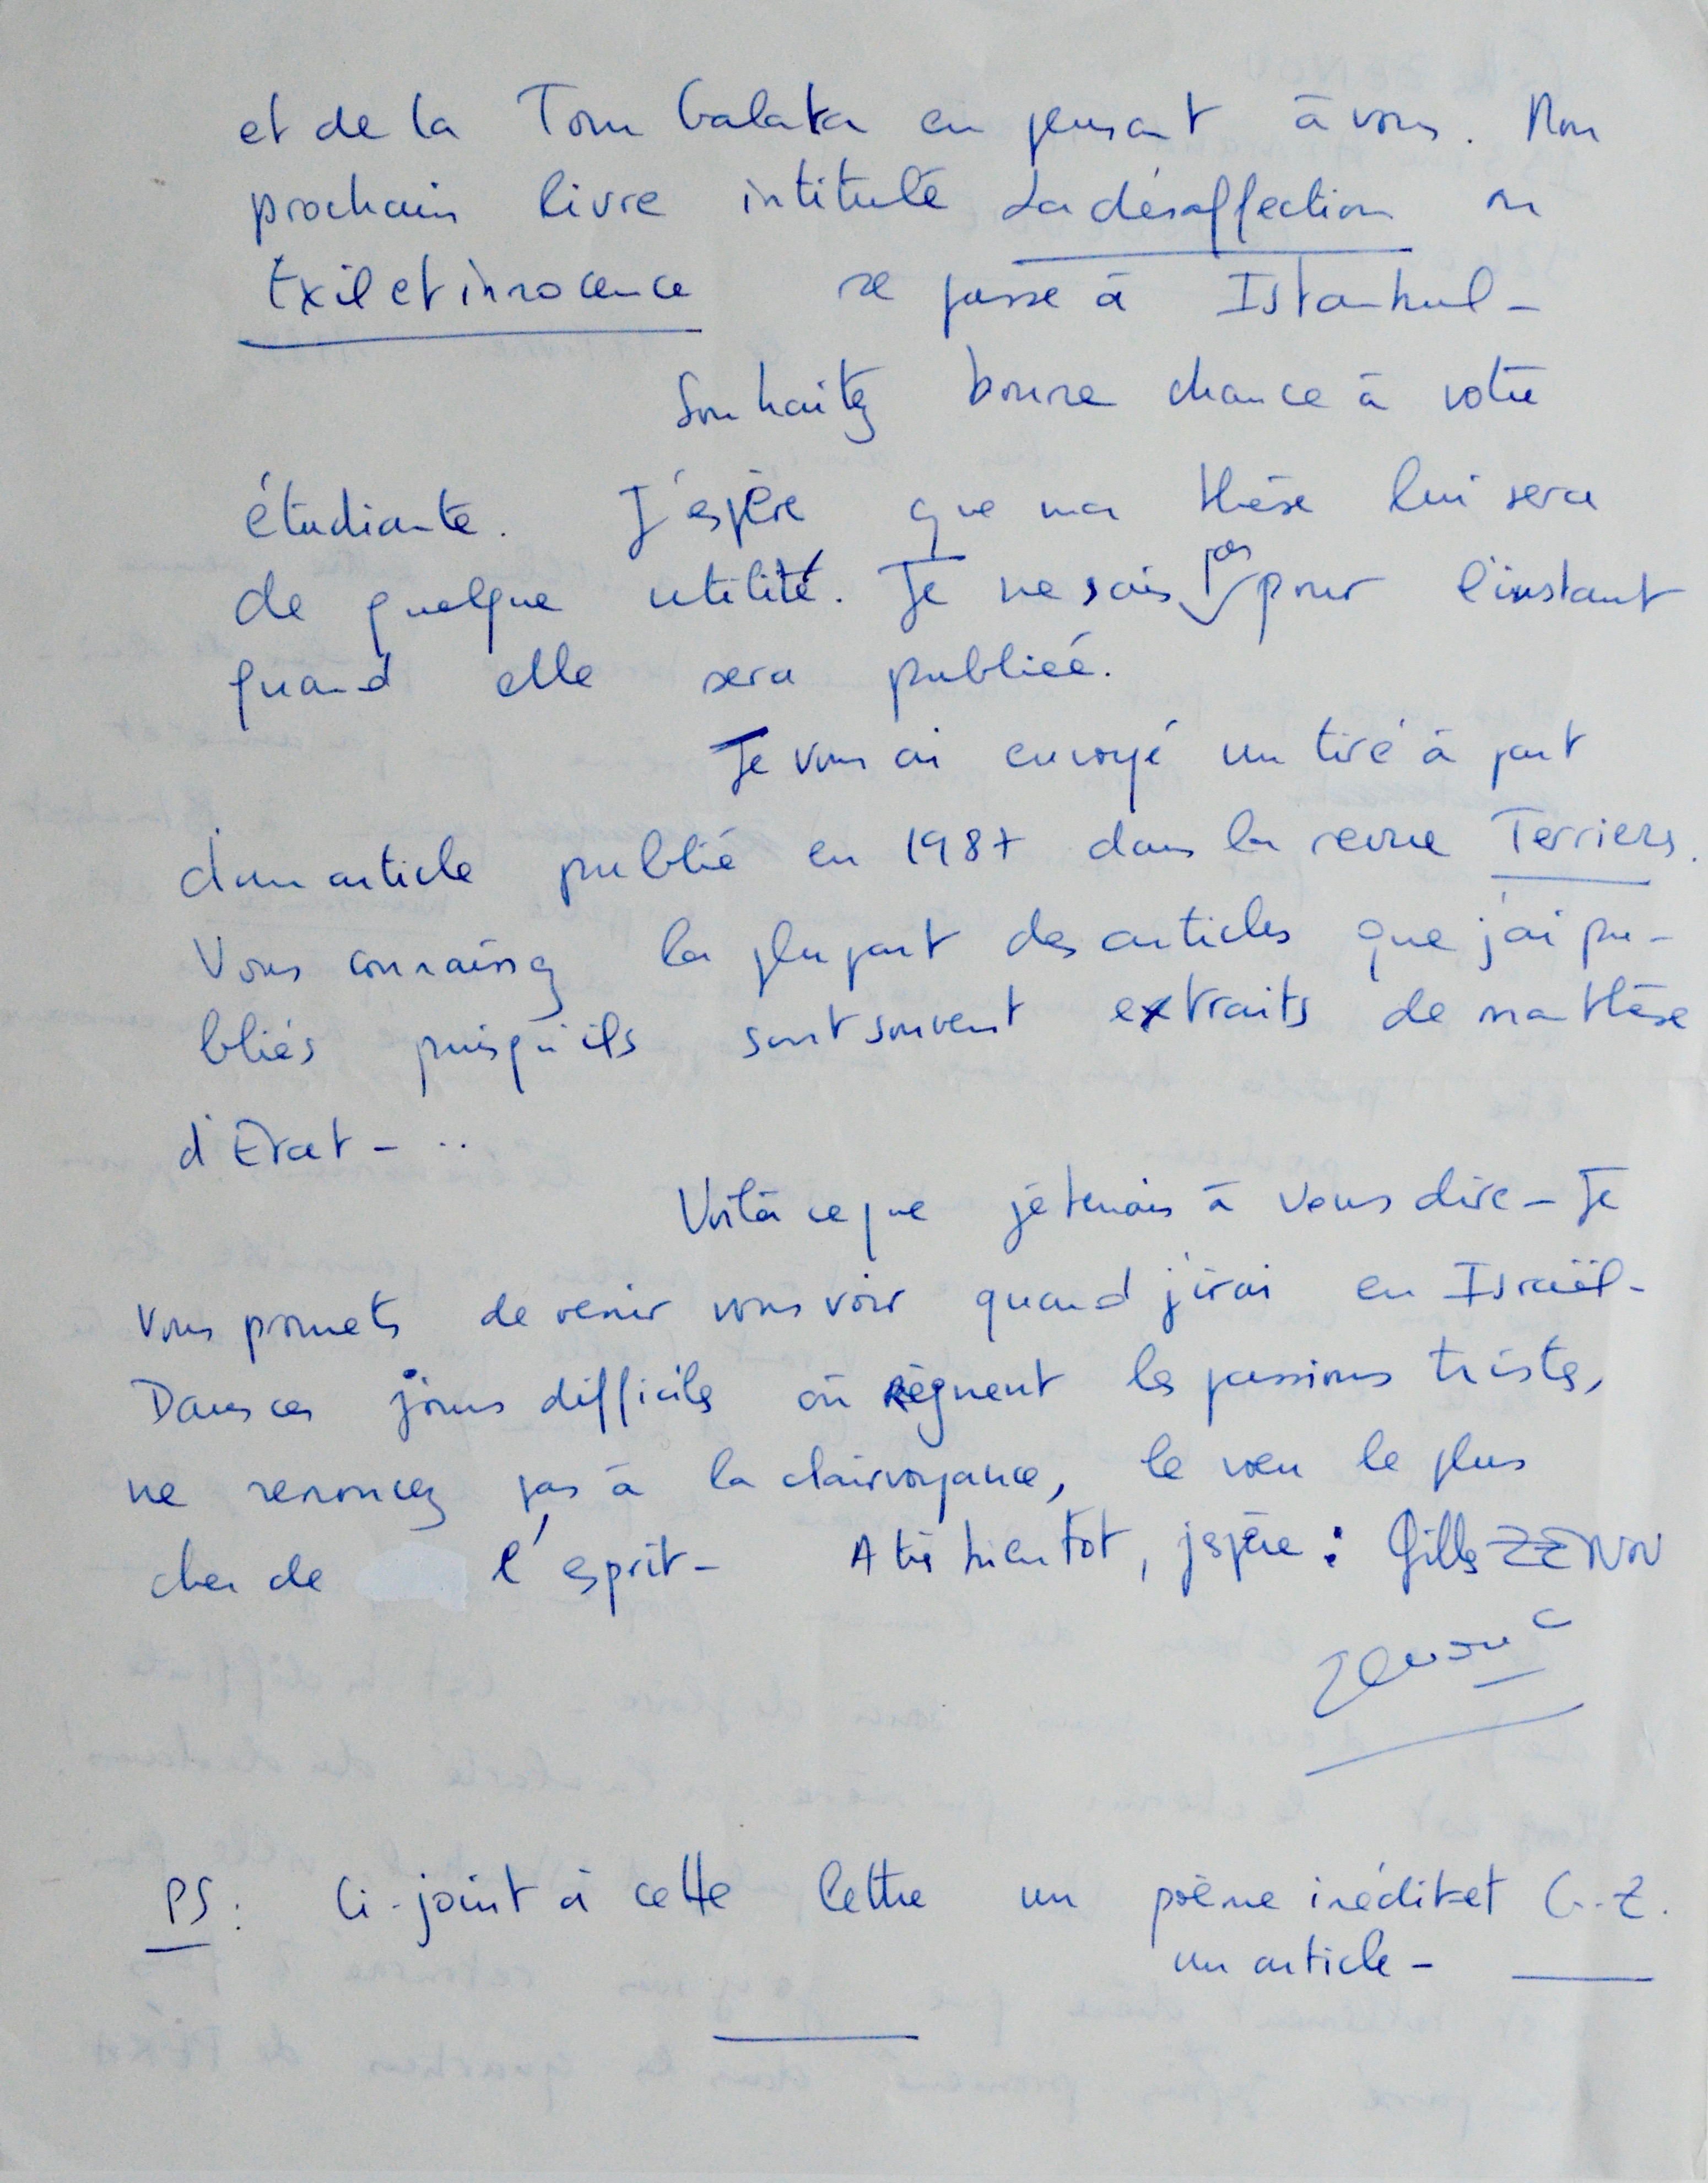 et de la Tour Galata en pensant à vous. Mon
prochain livre intitulé La désaffection ou
Exil et innocence se passe à Istanbul -
Souhaitez bonne chance à votre
étudiante. J'espère que ma thèse lui sera
de quelque utilité. Je ne sais pas pour l'instant
quand elle sera publiée.
Je vous ai envoyé un tiré à part
d'un article publié en 1987 dans la revue Terriers.
Vous connaissez la plupart des articles que j'ai pu-
bliés puisqu'ils sont souvent extraits de ma thèse
d'Etat - ..
Voilà ce que je tenais à vous dire - Je
vous promets de venir vous voir quand j'irai en Israël -
Dans ces jours difficiles où règnent les passions tristes,
ne renoncez pas à la clairvoyance, le vœu le plus
cher de l'esprit - A très bientôt, j'espère : Gilles ZENOU
Zenou
PS : Ci-joint à cette lettre un poème inédit et G.Z.
un article -